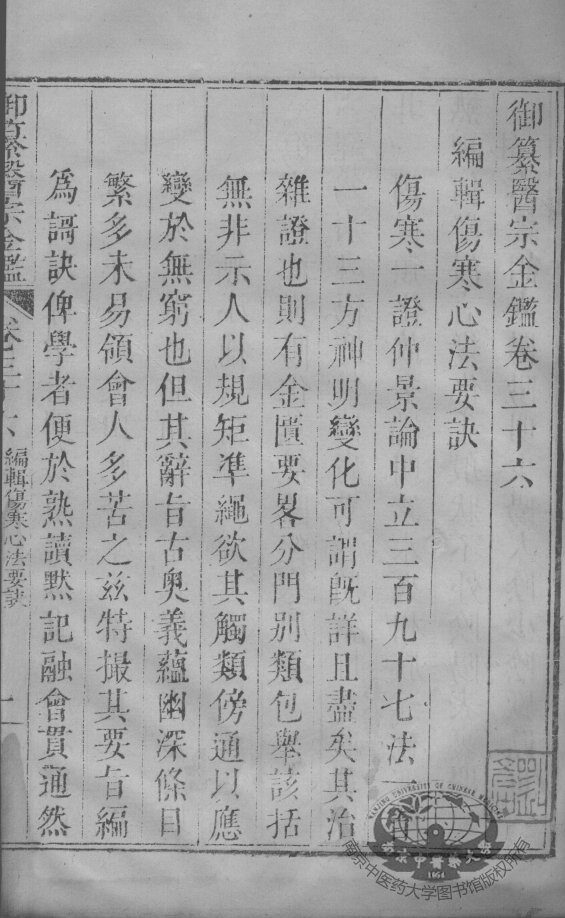 御纂醫宗金鑑卷三十六
編輯傷寒心法要訣
傷寒一證仲景論中立三百九十七法一百
一十三方神明變化可謂既詳且盡矣其治
雜證也則有金匱要畧分門别類包舉該括
無非示人以規矩凖繩欲其觸類傍通以應
變於無窮也但其辭旨古奥義蘊幽深條目
繁多未易領會人多苦之兹特撮其要旨編
爲謌訣俾學者便於熟讀默記融會貫通然
御纂醫宗金鑑
卷三十六
編輯傷寒心法要訣
一
NANJING UNIVERSITY OF CHINESE MEDICINE
南京中醫藥大學
1954
南京中医药大学图书馆版权所有